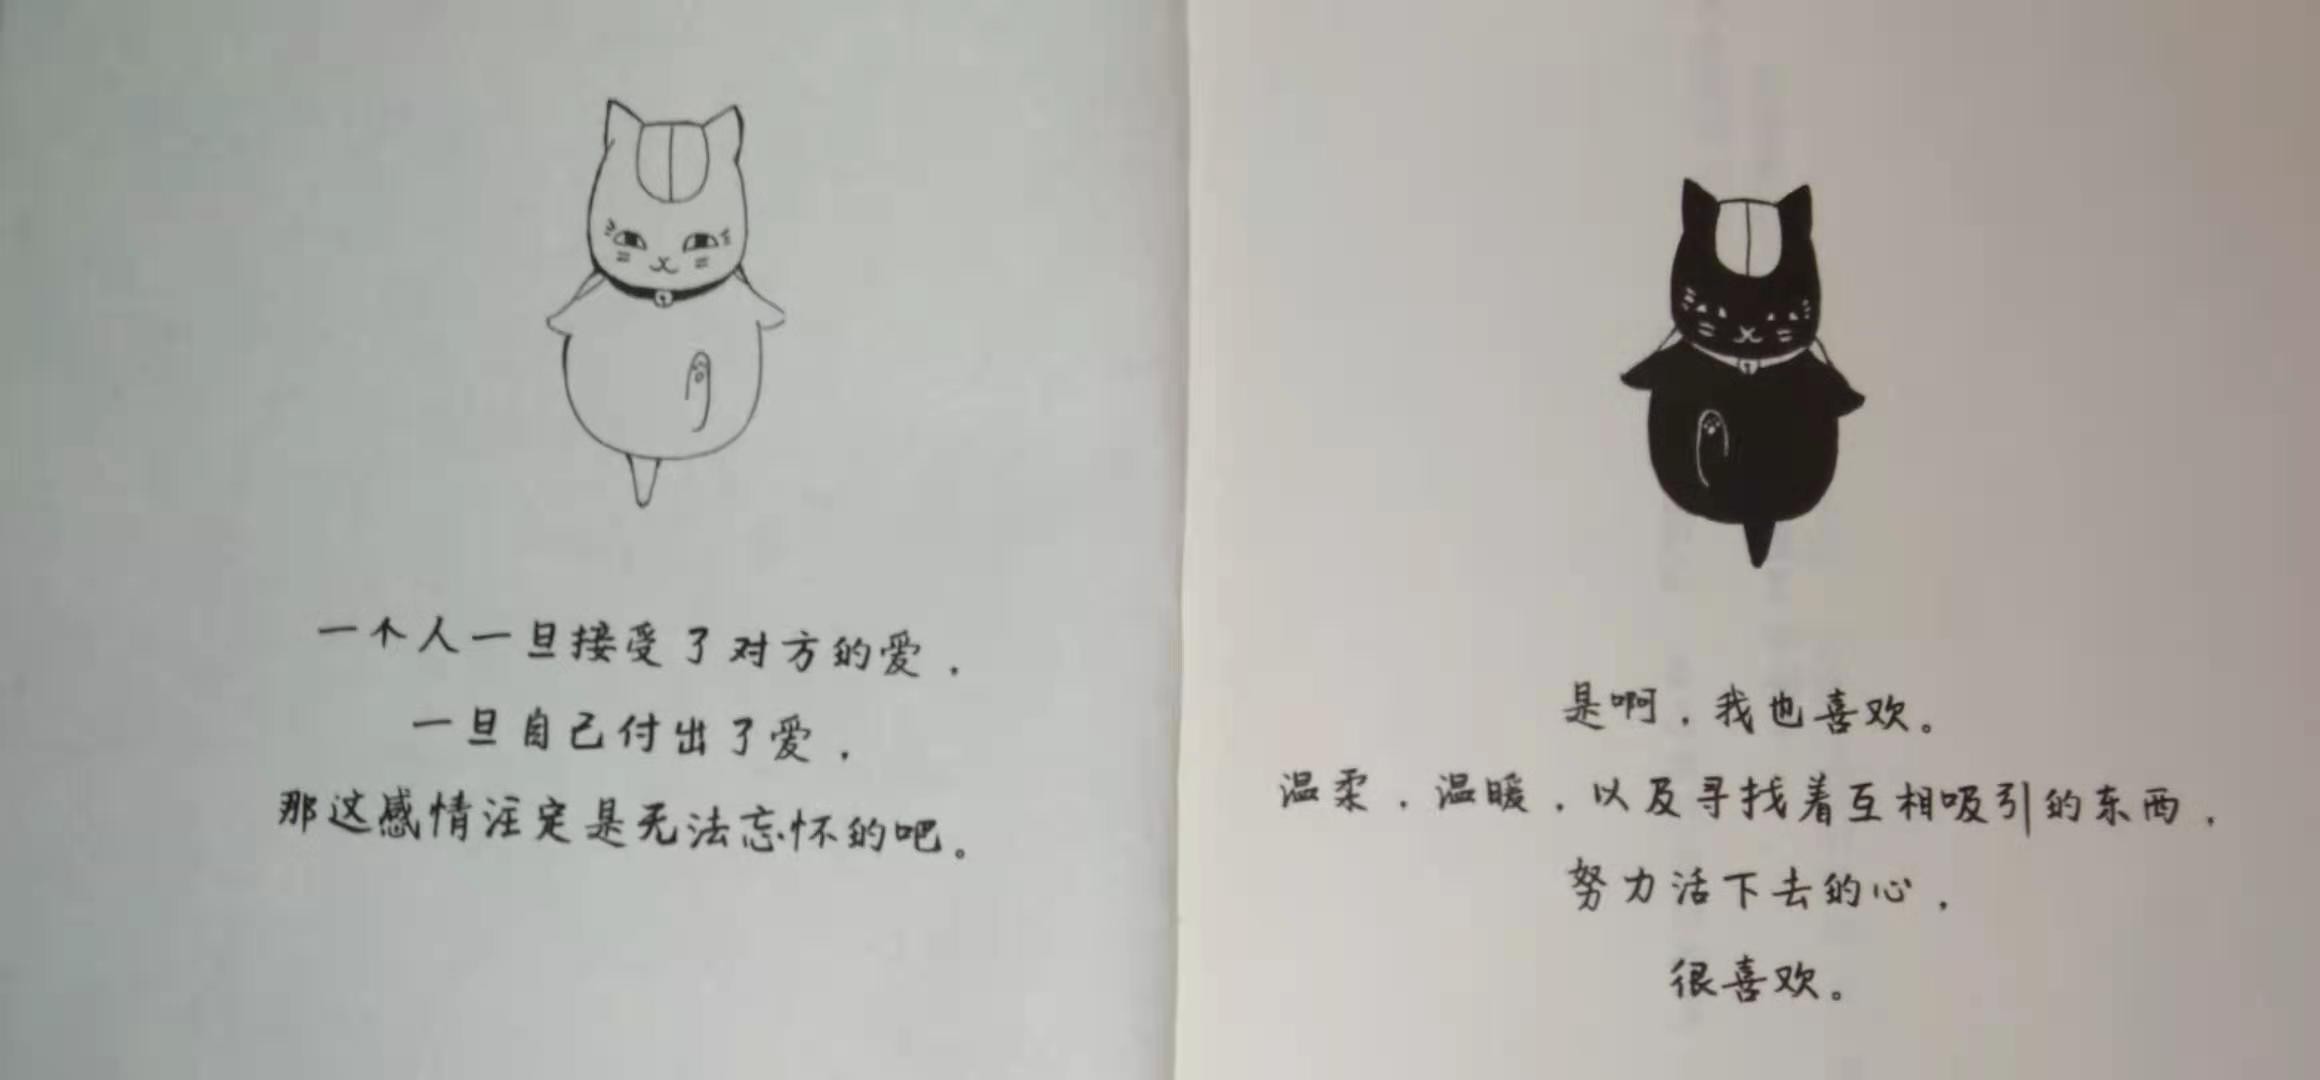 一个人一旦接受了对方的爱，
一旦自己付出了爱，
那这感情注定是无法忘怀的吧。
是啊，我也喜欢。
温柔，温暖，以及寻找着互相吸引的东西，
努力活下去的心，
很喜欢。